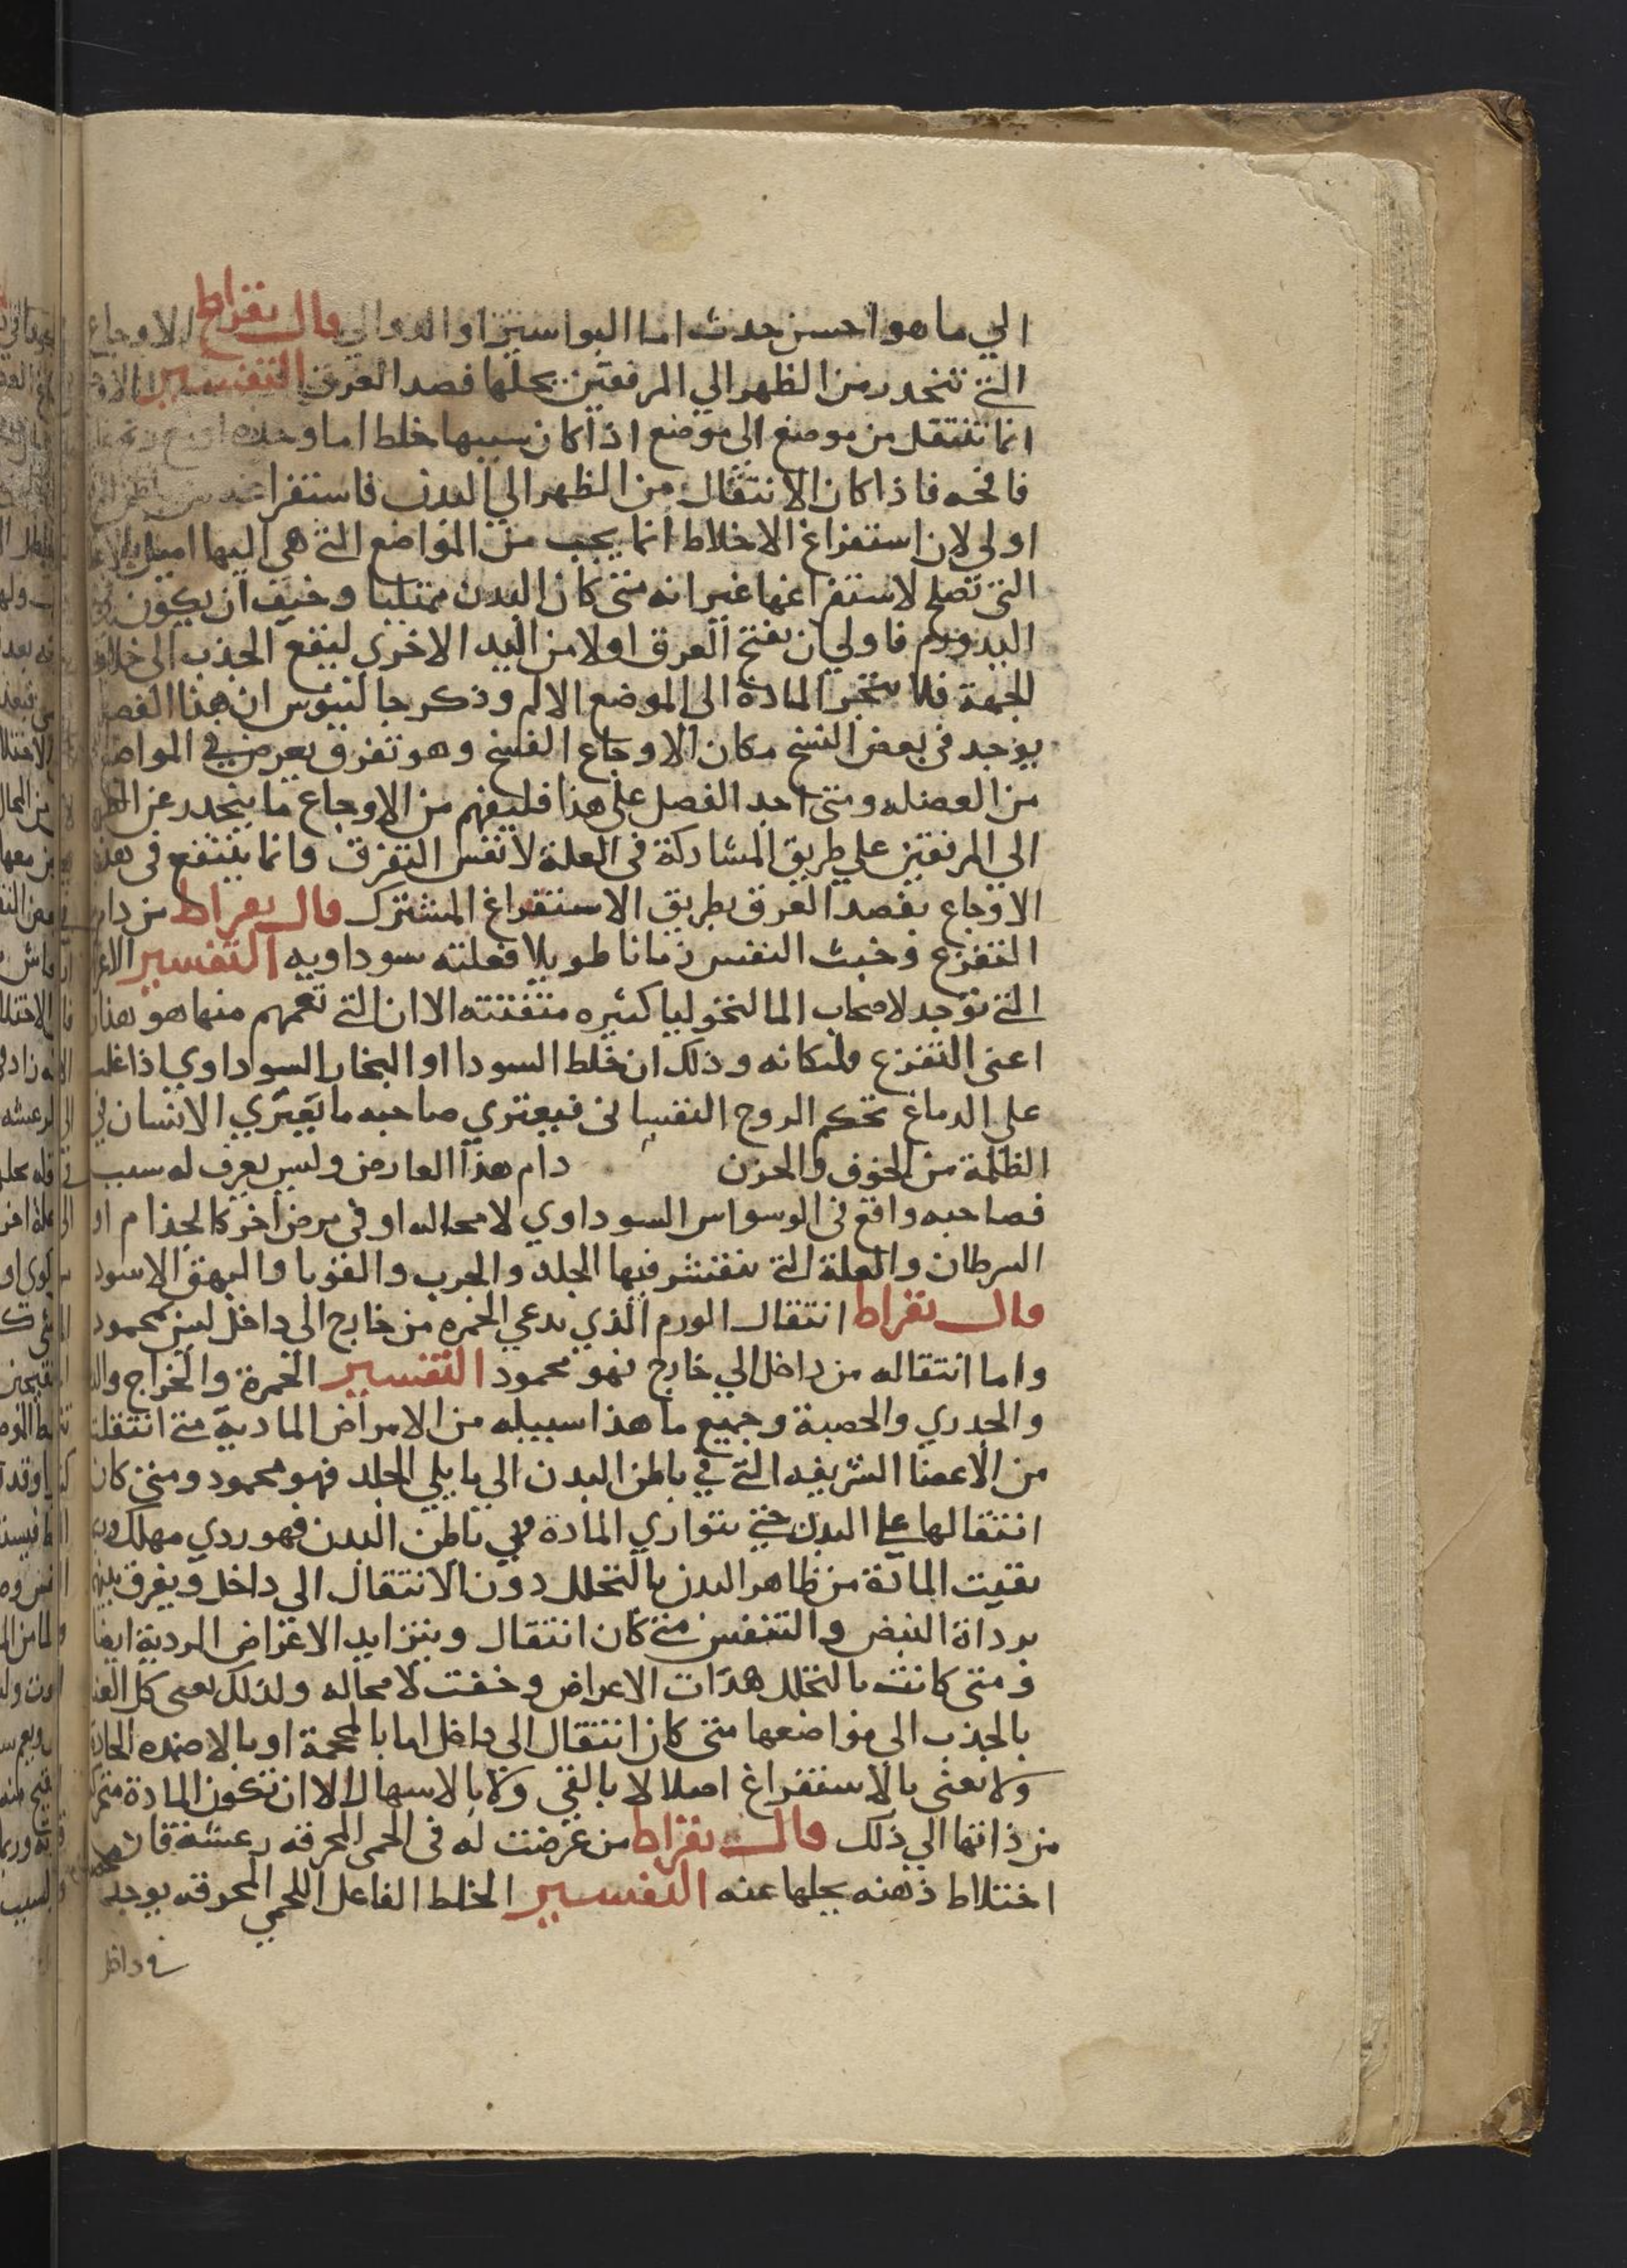 الي ما هو احسن حدث اما البواسير او الدوالي قال بقراط الاوجاع
التي تنحدر من الظهر الي المرفقين يحلها فصد العرق التفسير
انما تنتقل من موضع الي موضع اذا كان سببها خلط اما وحده او
فاذا كان الانتقال من الظهر الي اليدين فاستفراغه
اولي لان استفراغ الاخلاط انما يجب من المواضع التي هي اليها اميل
التي تصلح لاستفراغها غير انه متي كان البدن ممتليا وخيف ان يكون
اليد ورم فاولي ان يفتح العرق اولا من اليد الاخري ليقع الجذب الي خلاف
الجهة فلا المادة الي الموضع الالم وذكر جالينوس ان هذا الفصل
يوجد في بعض النسخ مكان الاوجاع الفسخ وهو تفرق يعرض في المواضع
من العضله ومتي اجد الفصل علي هذا فليفهم من الاوجاع ما ينحدر عن الظهر
الي المرفقين علي طريق المشاركة في العلة لا نفس التفرق وانما ينتفع في هذه
الاوجاع بفصد العرق بطريق الاستفراغ المشترك قال بقراط من دام
التفزع وخبث النفس زمانا طويلا فعلته سوداويه التفسير
التي توجد لاصحاب المالنخوليا كثيره متفننه الا ان التي تعمهم منها هو هذان
اعني التفزع وذلك ان خلط السودا او البخار السوداوي اذا غلب
علي الدماغ الروح النفساني فيعتري صاحبه ما يعتري الانسان في
الظلمة من الخوف والحزن دام هذا العارض وليس يعرف له سبب
فصاحبه واقع في الوسواس السوداوي لا محاله او في مرض اخر كالجذام او
السرطان والعلة التي يتقشر فيها الجلد والجرب والقوبا والبهق الاسود
قال بقراط انتقال الورم الذي يدعي الحمره من خارج الي داخل ليس بمحمود
واما انتقاله من داخل الي خارج فهو محمود التفسير الحمرة والخراج
والجدري والحصبة وجميع ما هذا سبيله من الامراض المادية متي انتقلت
من الاعضا الشريفه التي في باطن البدن الي ما يلي الجلد فهو محمود ومتي كان
انتقالها علي البدن حتي يتواري المادة في باطن البدن فهو ردي مهلك
بقيت المادة من ظاهر البدن بالتحلل دون الانتقال الي داخل ويفرق بينهما
برداة النبض والتنفس متي كان انتقال ويتزايد الاعراض الردية ايضا
ومتي كانت بالتحلل هدات الاعراض وخفت لا محاله ولذلك يعني كل
بالجذب الي مواضعها متي كان انتقال الي داخل اما بالمحجمة او بالاضمده الحارة
ولا يعني بالاستفراغ اصلا لا بالقي ولا بالاسهال الا ان تكون المادة
من ذاتها الي ذلك قال بقراط من عرضت له في الحمي المحرقه رعشة فان
اختلاط ذهنه يحلها عنه التفسير الخلط الفاعل للحمي المحرقه يوجد
داخل